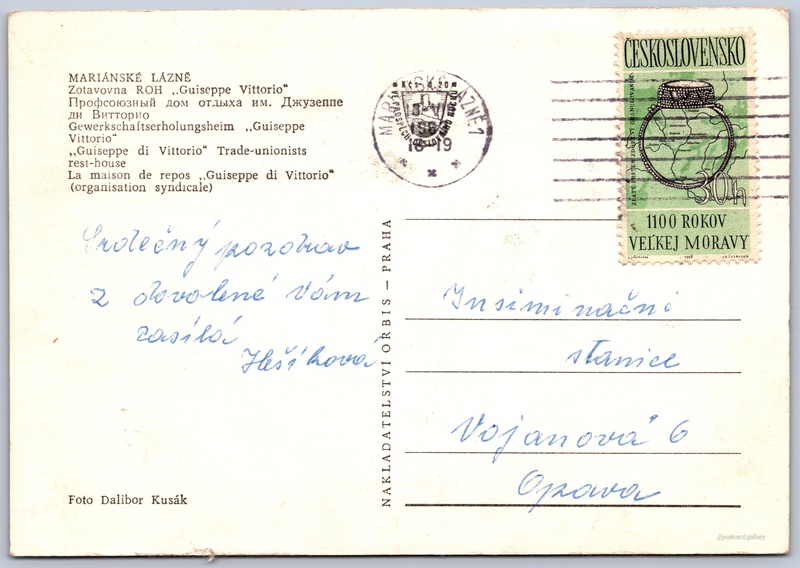 MARIÁNSKÉ LÁZNĚ
Zotavovna ROH „Guiseppe Vittorio“
Профсоюзный дом отдыха им. Джузеппе
ди Витторио
Gewerkschaftserholungsheim „Guiseppe
Vittorio“
„Guiseppe di Vittorio“ Trade-unionists
rest-house
La maison de repos „Guiseppe di Vittorio“
(organisation syndicale)
Srdečný pozdrav
z dovolené Vám
zasílá
Foto Dalibor Kusák
NAKLADATELSTVÍ ORBIS – PRAHA
MARIÁNSKÉ LÁZNĚ 1
16-19
ČESKOSLOVENSKO
30h
1100 ROKOV
VEĽKEJ MORAVY
Insiminační
stanice
Vojanová 6
Opava